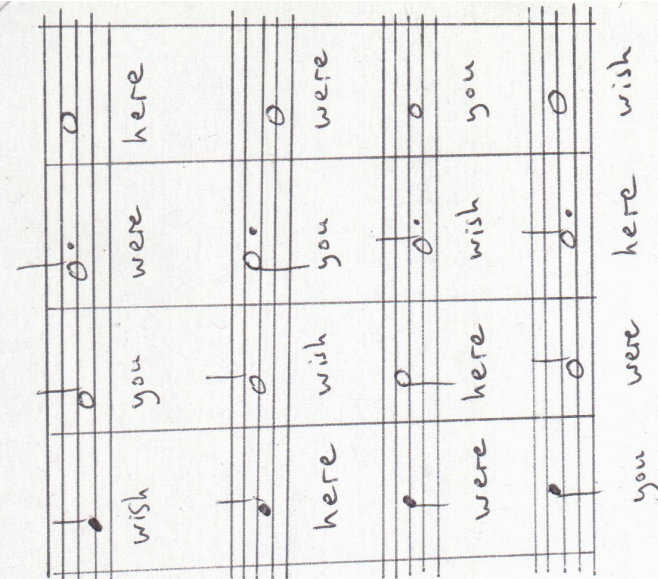 wish you were here
here wish you were
were here wish you
you were here wish